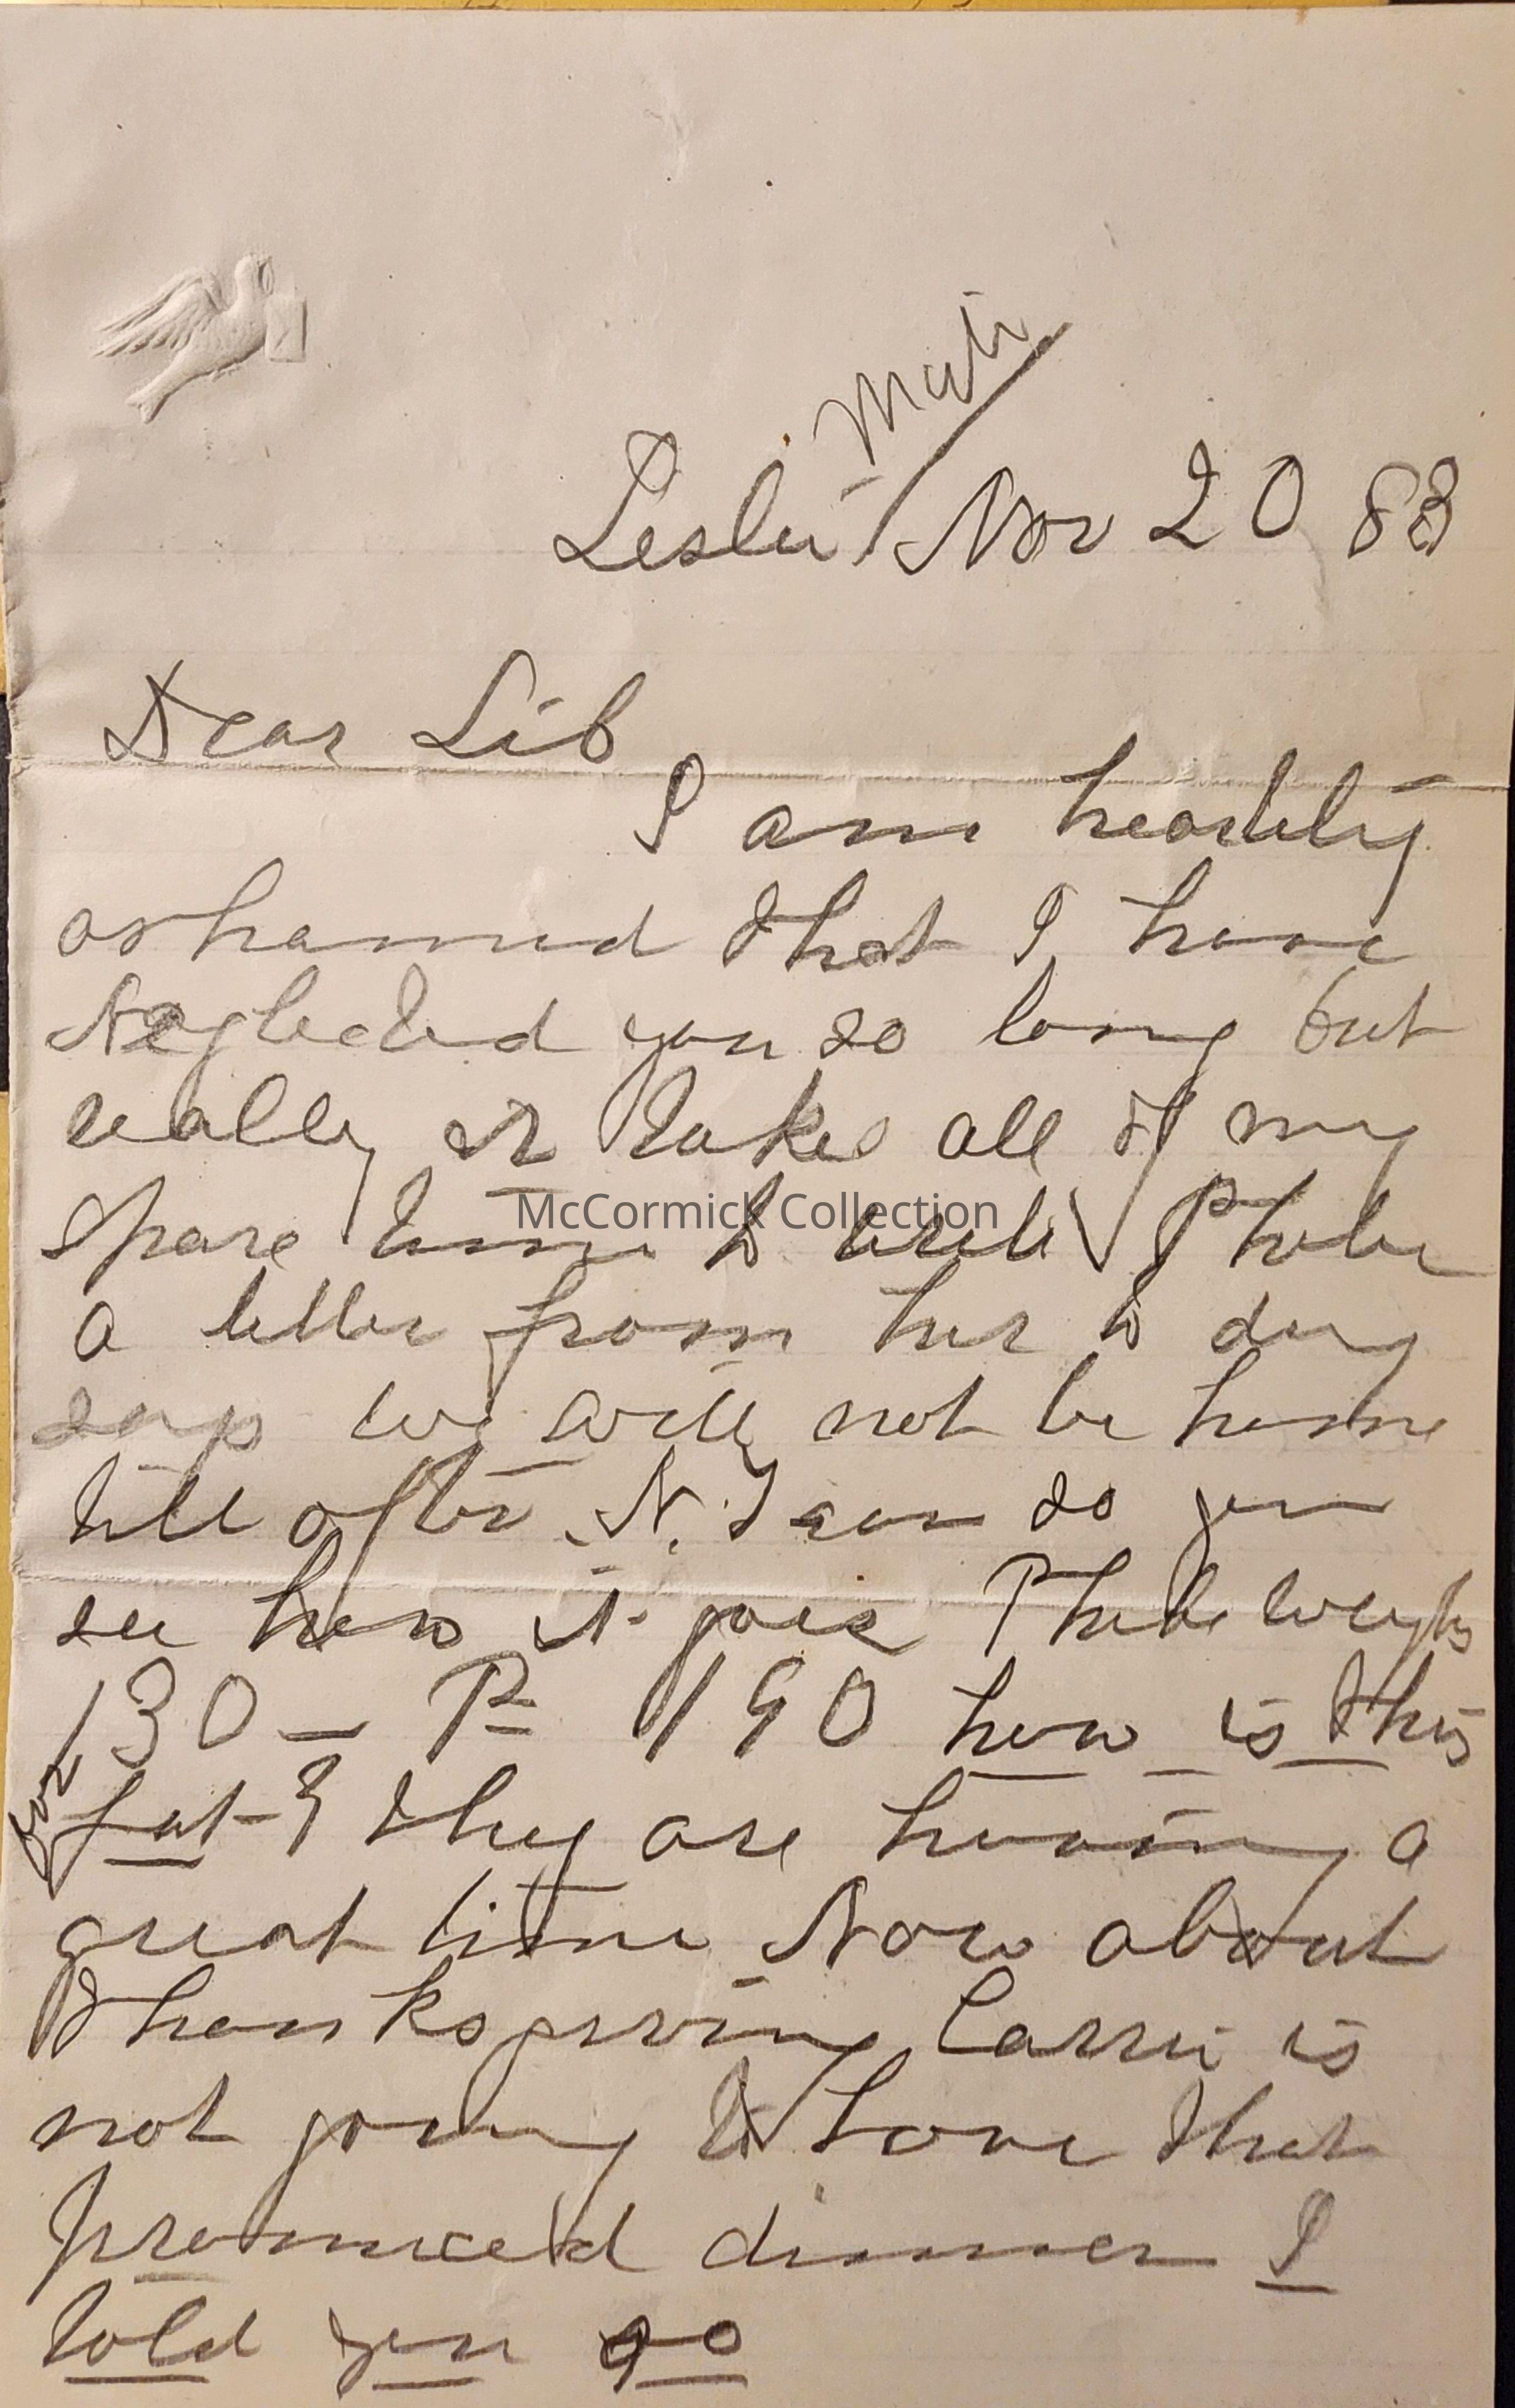 Mich
Leslie / Nov 20 88
Dear Lib
I am heartily
ashamed that I have
Neglected you so long but
really it takes all of my
McCormick Collection
Spare time to write Phebe
a letter from her to day
says we will not be home
till after N. Year so you
see how it goes Phebe weighs
130 — P 190 how is this
for fat? they are having a
great time Now about
thanksgiving Carrie is
not going to have that
promiced dinner I
told you so